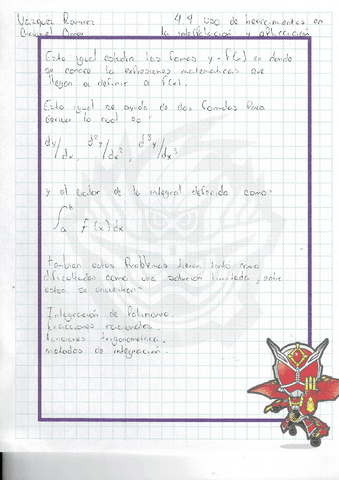 Vázquez Ramirez
4.4 uso de herramientas en
la interpolación y aplicación
Este igual estudia las formas y = f(x) en donde
se conoce la expresiones matematicas que
llegan a definir a f(x).
Este igual se ayuda de dos formulas Para
derivar la cual es:
dy/dx, d²y/dx², d³y/dx³
y al valor de la integral definida como:
∫ₐᵇ f(x)dx
tambien estos Problemas tienen tanto como
dificultades como una solución limitada, entre
estos se encuentran:
Integración de Polinomio.
fracciones racionales.
funciones trigonometrica.
metodos de integración.